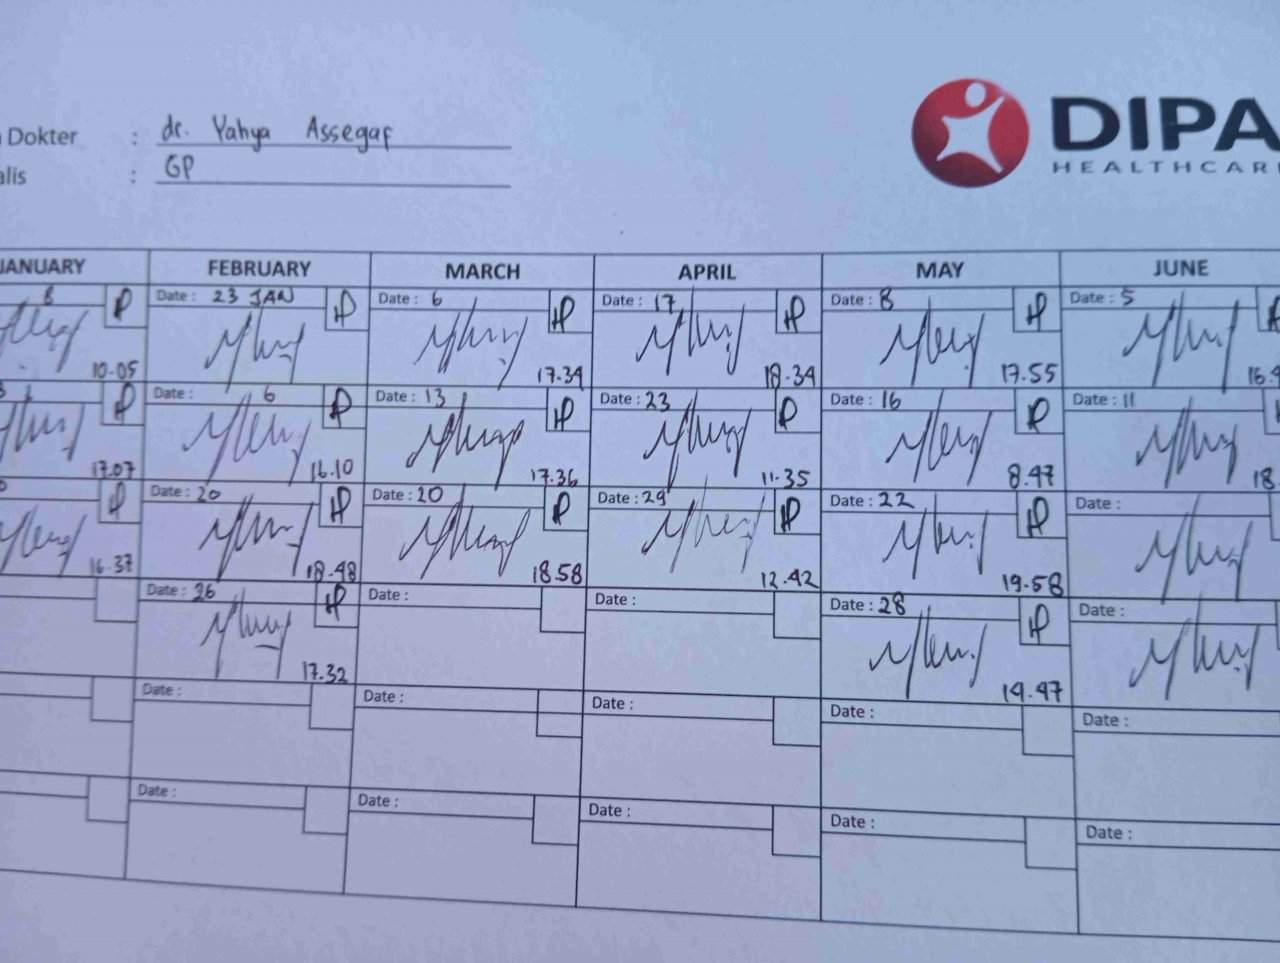 Dokter : dr. Yahya Assegaf
alis : GP
DIPA
HEALTHCAR
JANUARY FEBRUARY MARCH APRIL MAY JUNE
8 Date : 23 JAN Date : 6 Date : 17 Date : 8 Date : 5
10.05 17.34 18.34 17.55 16.4
3 Date : 6 Date : 13 Date : 23 Date : 16 Date : 11
17.07 16.10 17.36 11.35 8.47 18.
Date : 20 Date : 20 Date : 29 Date : 22 Date :
16.37 18.48 18.58 12.42 19.58
Date : 26 Date : Date : Date : 28 Date :
17.32 14.47
Date : Date : Date : Date : Date :
Date : Date : Date : Date : Date :